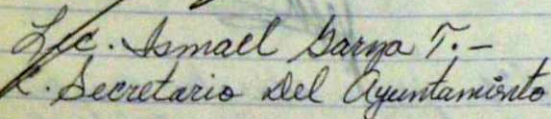 Lic. Ismael Garza T.-
C. Secretario Del Ayuntamiento